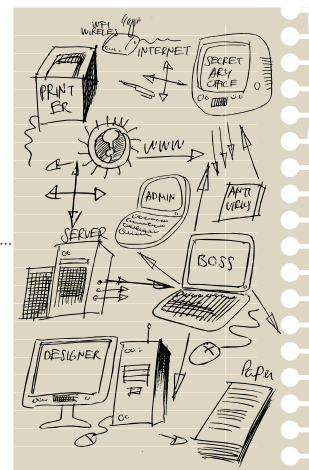 WIFI
WIRELES
INTERNET
SECRET
ARY
OFFICE
PRINT
ER
WWW
ADMIN
ANTI
VIRUS
SERVER
BOSS
DESIGNER
Paper